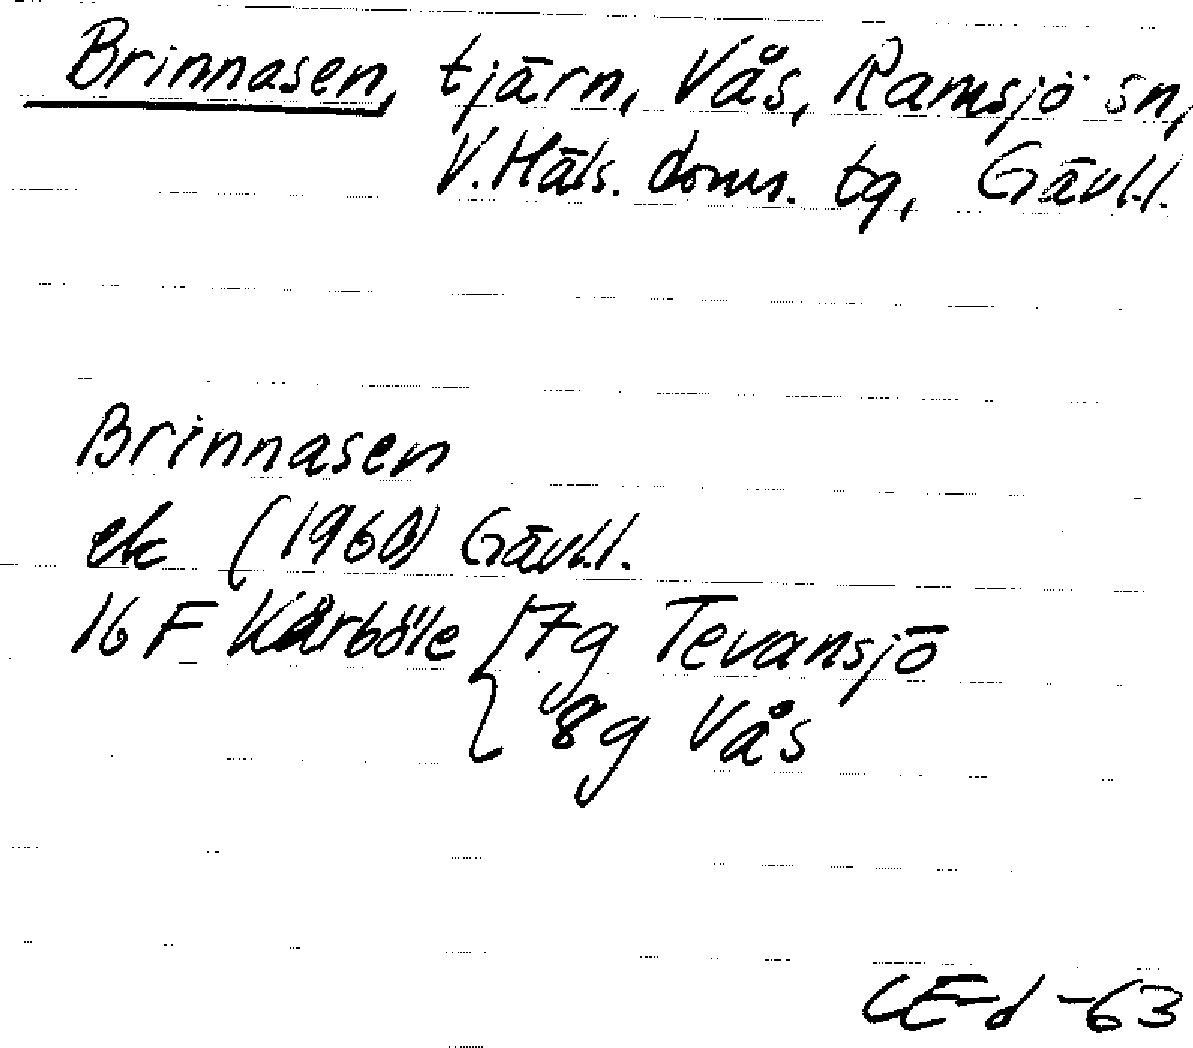 Brinnasen, tjärn, Vås, Ramsjö sn,
V. Häls. doms. tg, Gävl.l.
Brinnasen
ek (1960) Gävl.l.
16 F Kårböle { 7g Tevansjö
8g Vås
CE-d -63